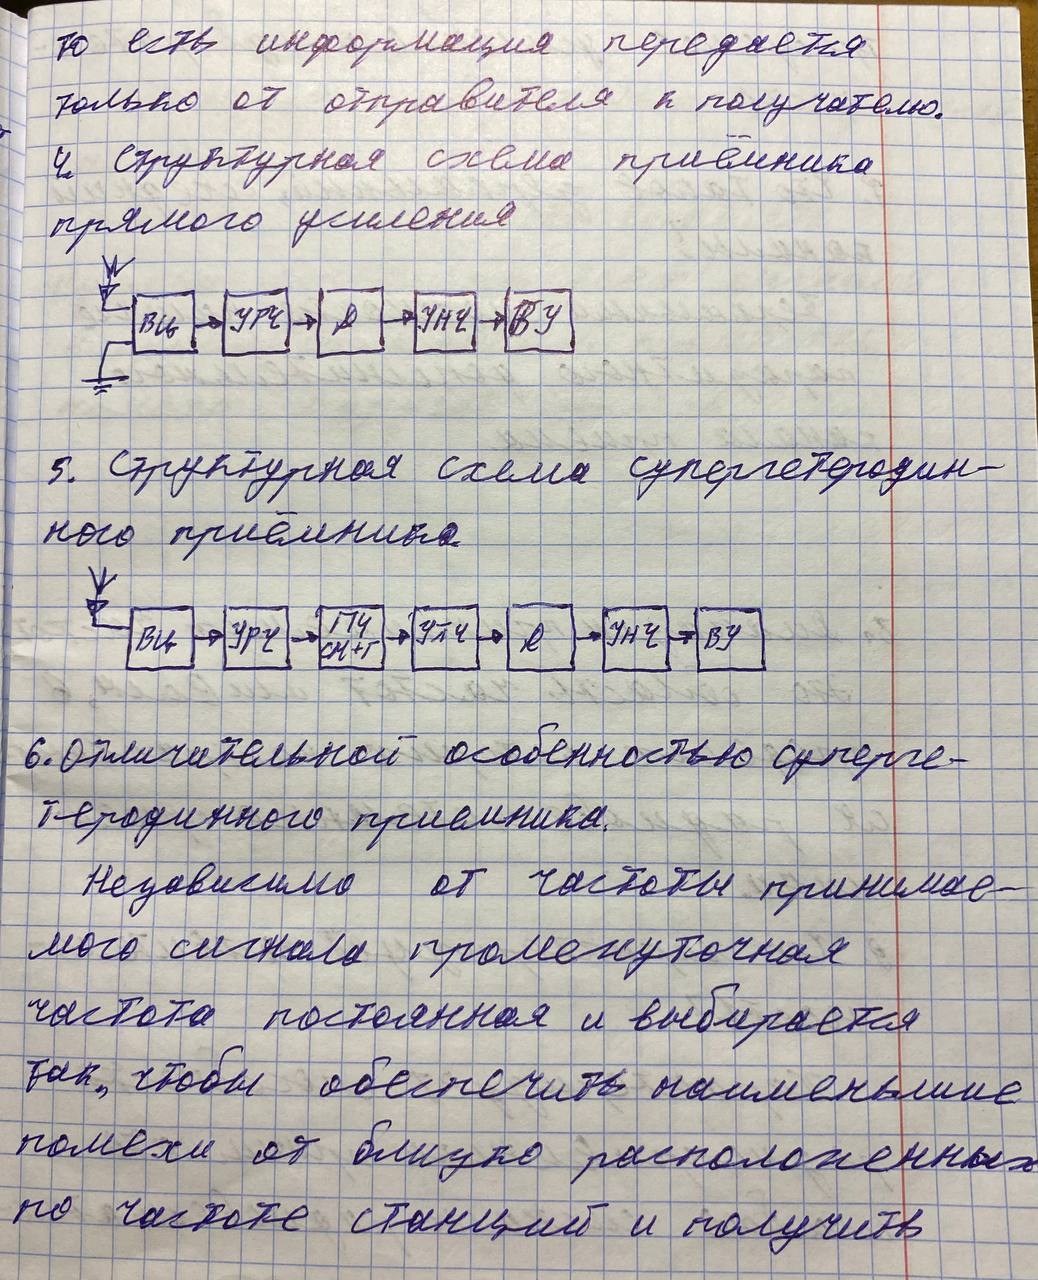 то есть информация передается
только от отправителя к получателю.
4. Структурная схема приёмника
прямого усиления
ВЦ УРЧ Д УНЧ ВУ
5. Структурная схема супергетеродин-
ного приёмника
ВЦ УРЧ ГПЧ см+г УПЧ Д УНЧ ВУ
6. Отличительной особенностью суперге-
теродинного приемника.
Независимо от частоты принимае-
мого сигнала промежуточная
частота постоянная и выбирается
так, чтобы обеспечить наименьшие
помехи от близко расположенных
по частоте станций и получить